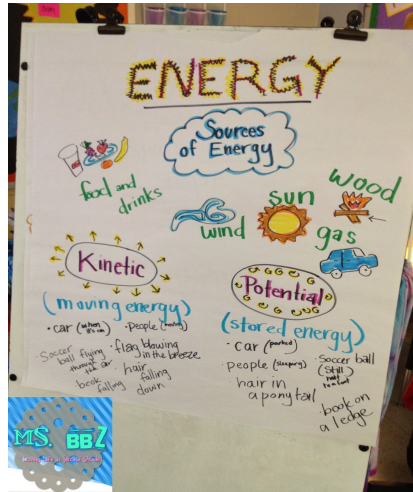 ENERGY
Sources
of Energy
food and
drinks
wind
sun
wood
gas
Kinetic
(moving energy)
• car (when it's on)
• people (moving)
Soccer
ball flying
through
the air
• flag blowing
in the breeze
book
falling
hair
falling
down
Potential
(stored energy)
• car (parked)
people (sleeping)
hair in
a ponytail
• Soccer ball
(still)
• book on
a ledge
MS. BBZ